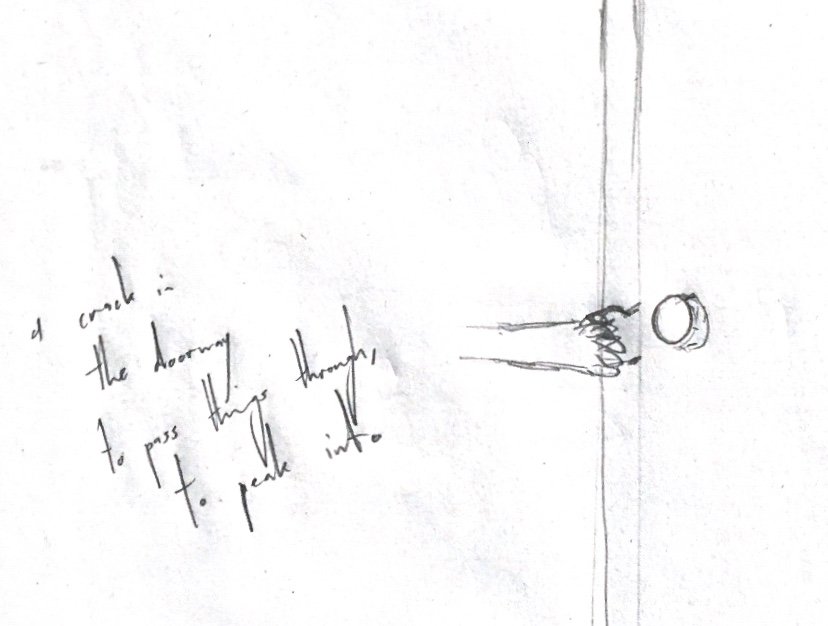 a crack in
the doorway
to pass things through,
to peak into